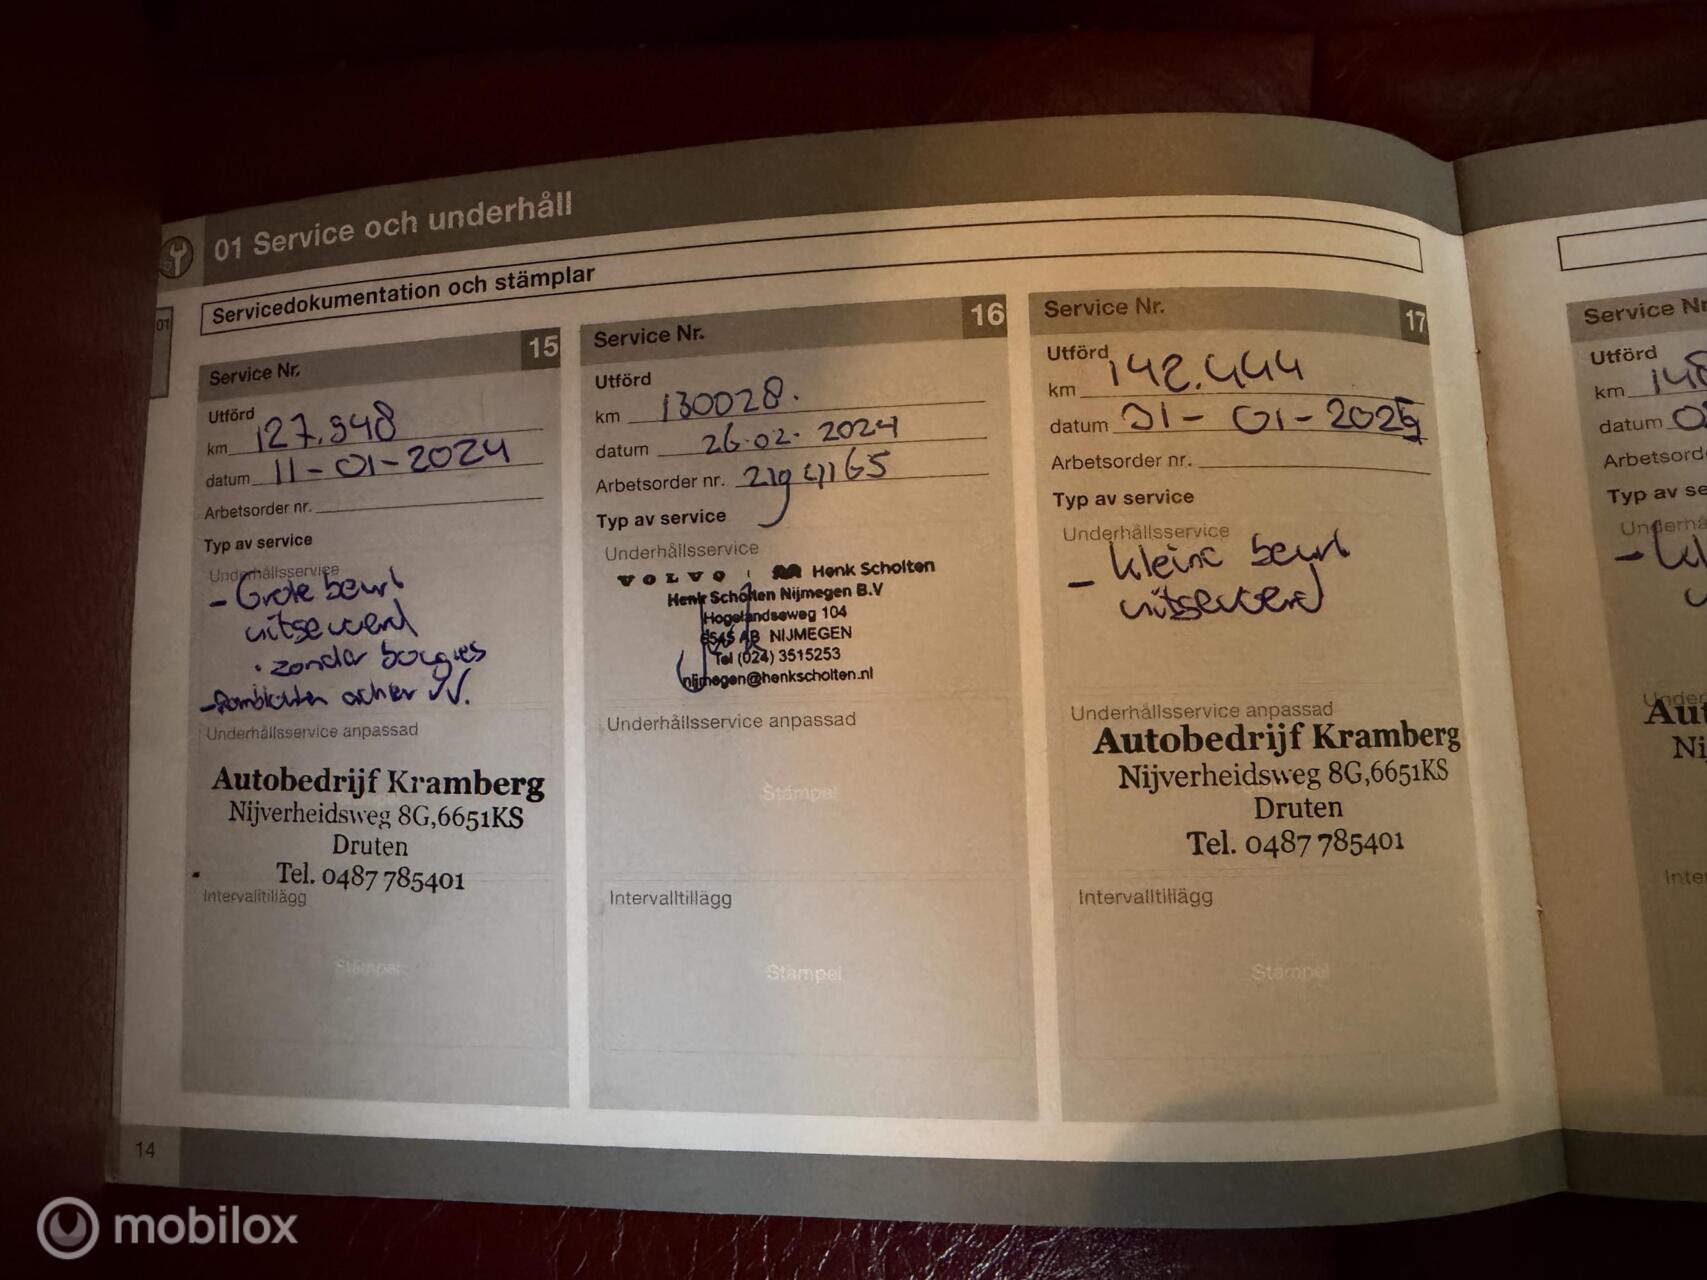 01 Service och underhåll
Servicedokumentation och stämplar
01
Service Nr. 15
Utförd
km 127.948
datum 11-01-2024
Arbetsorder nr.
Typ av service
Underhållsservice
- Grote beurt
uitgevoerd
• zonder bougies
- Remblokken achter VV.
Underhållsservice anpassad
Autobedrijf Kramberg
Nijverheidsweg 8G,6651KS
Druten
Tel. 0487 785401
Intervalltillägg
Stämpel
Service Nr. 16
Utförd
km 130028.
datum 26-02-2024
Arbetsorder nr.
Typ av service
Underhållsservice
VOLVO Henk Scholten
Henk Scholten Nijmegen B.V
Hogelandseweg 104
6545 AB NIJMEGEN
Tel (024) 3515253
nijmegen@henkscholten.nl
Underhållsservice anpassad
Stämpel
Intervalltillägg
Stämpel
Service Nr. 17
Utförd
km 142.444
datum 31-01-2025
Arbetsorder nr.
Typ av service
Underhållsservice
- kleine beurt
uitgevoerd
Underhållsservice anpassad
Autobedrijf Kramberg
Nijverheidsweg 8G,6651KS
Druten
Tel. 0487 785401
Intervalltillägg
Stämpel
Service Nr
Utförd
km
datum
Arbetsord
Typ av se
Underhå
Aut
Ni
Inter
14
mobilox